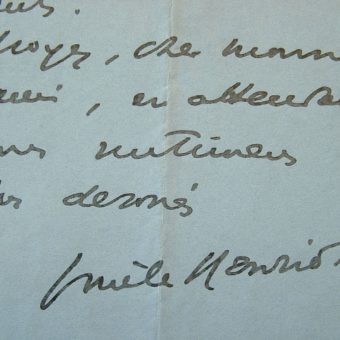 royez, cher mon
ami, en attendan
sentimens
devoués
Emile Henriot